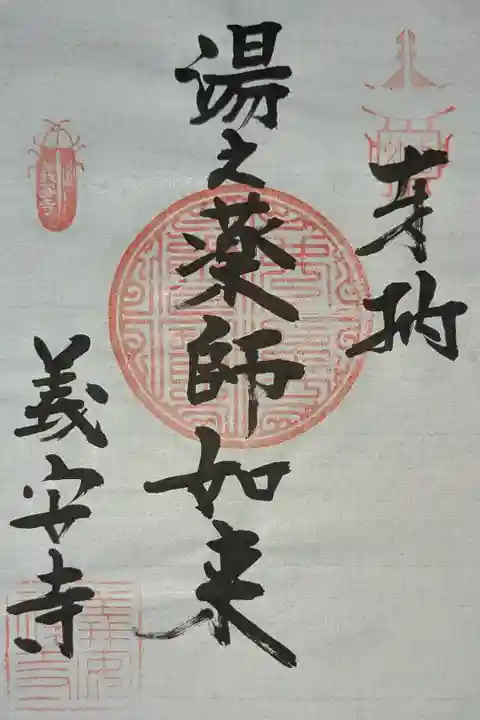 奉納
湯之薬師如来
義安寺
義安寺